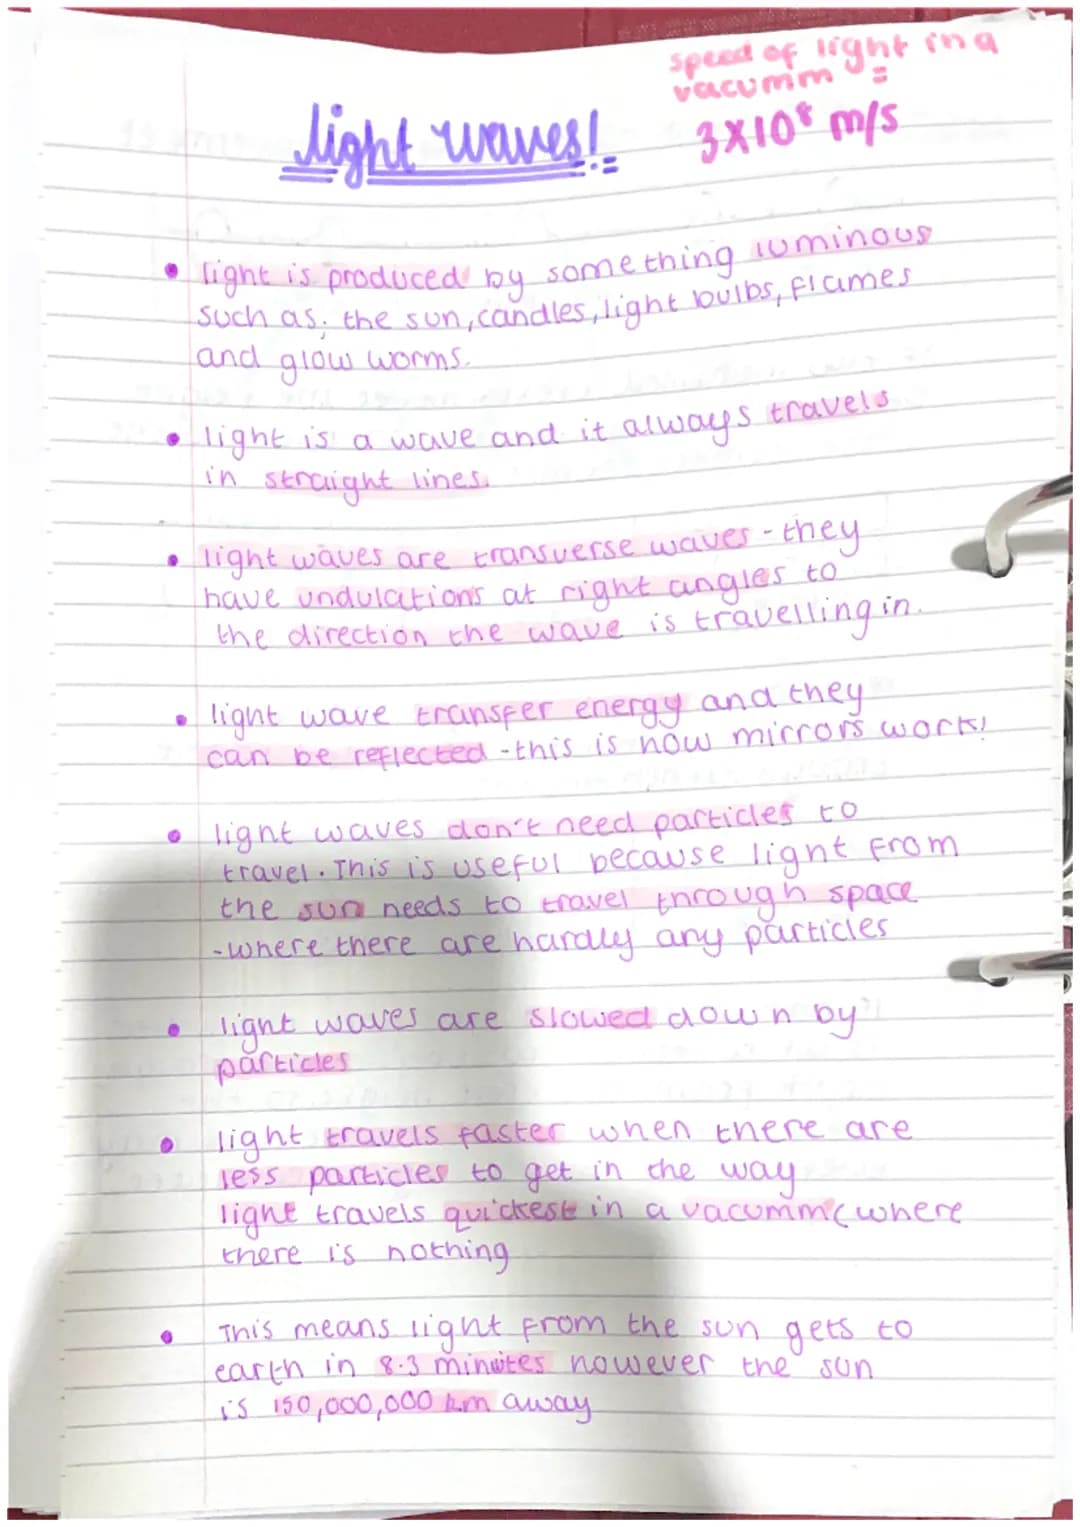 speed of light in a
vacumm =
3x10⁸ m/s
light waves!
• light is produced by something luminous
such as: the sun, candles, light bulbs, flames
and glow worms.
• light is a wave and it always travels
in straight lines.
• light waves are transverse waves - they
have undulations at right angles to
the direction the wave is travelling in.
• light wave transfer energy and they
can be reflected - this is how mirrors work!
• light waves don't need particles to
travel. This is useful because light from
the sun needs to travel through space
- where there are hardly any particles
• light waves are slowed down by
particles
• light travels faster when there are
less particles to get in the way
light travels quickest in a vacumm (where
there is nothing
• This means light from the sun gets to
earth in 8.3 minutes however the sun
is 150,000,000 km away